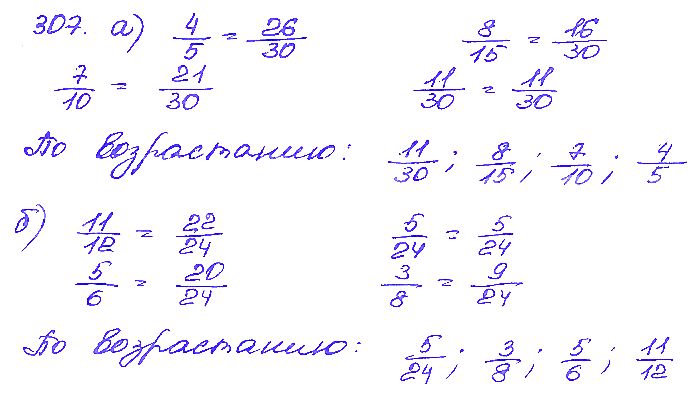 307. а) 4/5 = 26/30 8/15 = 16/30
7/10 = 21/30 11/30 = 11/30
По возрастанию: 11/30; 8/15; 7/10; 4/5
б) 11/12 = 22/24 5/24 = 5/24
5/6 = 20/24 3/8 = 9/24
По возрастанию: 5/24; 3/8; 5/6; 11/12